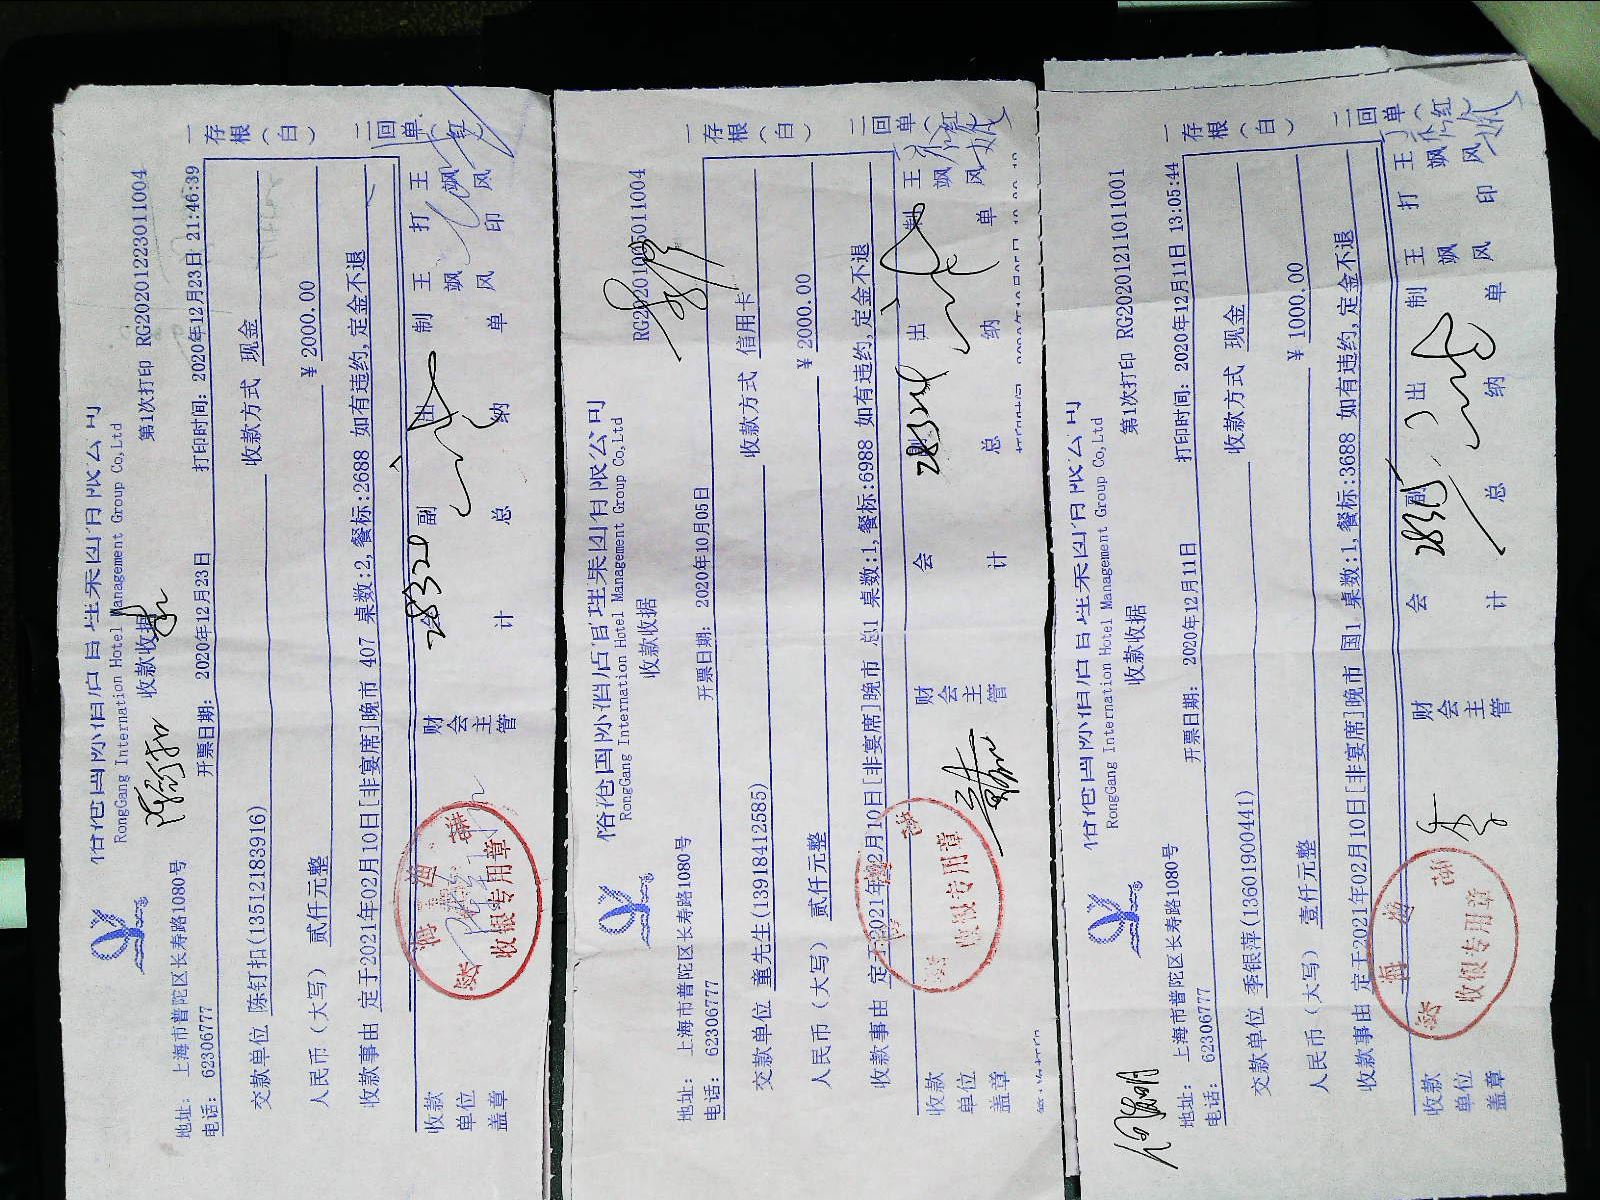 RongGang International Hotel Management Group Co,Ltd
收款收据
第1次打印 RG20201223011004
地址: 上海市普陀区长寿路1080号
电话: 62306777
开票日期: 2020年12月23日
打印时间: 2020年12月23日 21:46:39
交款单位 陈钉扣(13512183916)
收款方式 现金
人民币(大写) 贰仟元整
¥ 2000.00
收款事由 定于2021年02月10日[非宴席]晚市 407 桌数:2,餐标:2688 如有违约,定金不退
收款单位盖章
财会主管
总会计
28320
副总
出纳
制单
王飒风
打印
王飒风
收银专用章
一存根(白)
二回单(红)
RongGang International Hotel Management Group Co,Ltd
收款收据
RG20201005011004
地址: 上海市普陀区长寿路1080号
电话: 62306777
开票日期: 2020年10月05日
交款单位 童先生(13918412585)
收款方式 信用卡
人民币(大写) 贰仟元整
¥ 2000.00
收款事由 定于2021年02月10日[非宴席]晚市 总1 桌数:1,餐标:6988 如有违约,定金不退
收款单位盖章
财会主管
会计
总
出纳
制单
王飒风
收银专用章
一存根(白)
二回单(红)
RongGang International Hotel Management Group Co,Ltd
收款收据
第1次打印 RG20201211011001
地址: 上海市普陀区长寿路1080号
电话: 62306777
开票日期: 2020年12月11日
打印时间: 2020年12月11日 13:05:44
交款单位 季银萍(13601900441)
收款方式 现金
人民币(大写) 壹仟元整
¥ 1000.00
收款事由 定于2021年02月10日[非宴席]晚市 国1 桌数:1,餐标:3688 如有违约,定金不退
收款单位盖章
财会主管
会计
副总
出纳
制单
王飒风
打印
王飒风
收银专用章
一存根(白)
二回单(红)